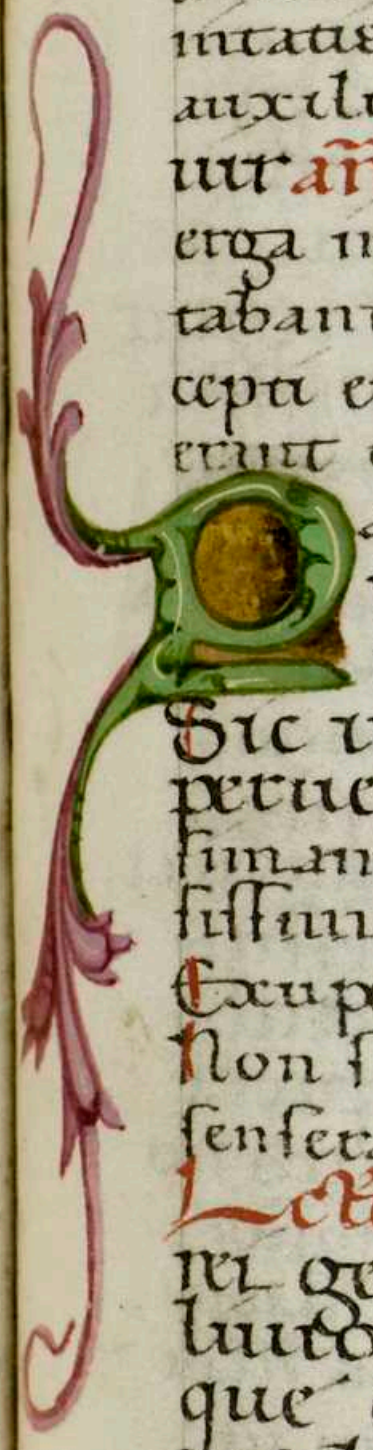 intatie
auxili
uit ar̃
erga i
tabant
cepti e
erunt
Q
Sic u
perue
siman
sissimi
Exupe
Non s
senser
Lect
rei ge
luuto
que